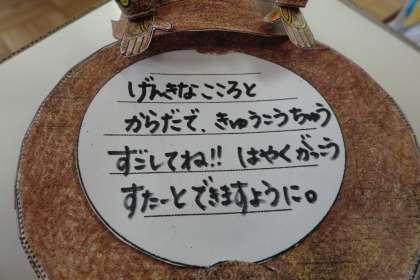 げんきなこころと
からだで、きゅうこうちゅう
すごしてね!! はやくがっこう
すたーとできますように。